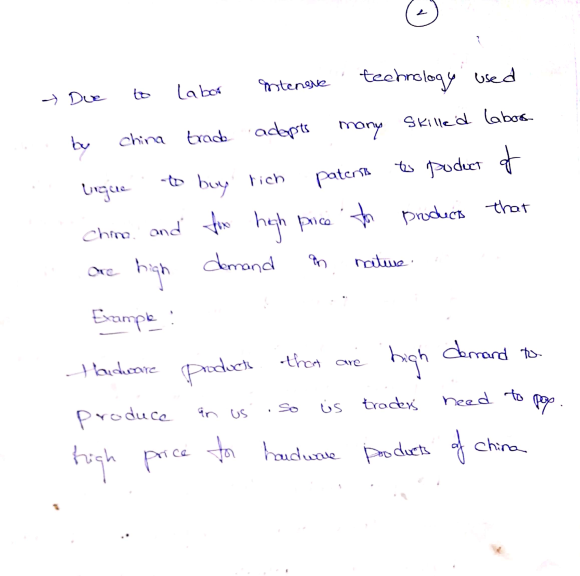 2
→ Due to Labor intensive technology used
by china trade adopts many skilled labor
to buy rich patents to product of
china. and fix high price for products that
are high demand in nature.
Example :
Hardware products that are high demand to
produce in us . so us traders need to pay.
high price for hardware products of china